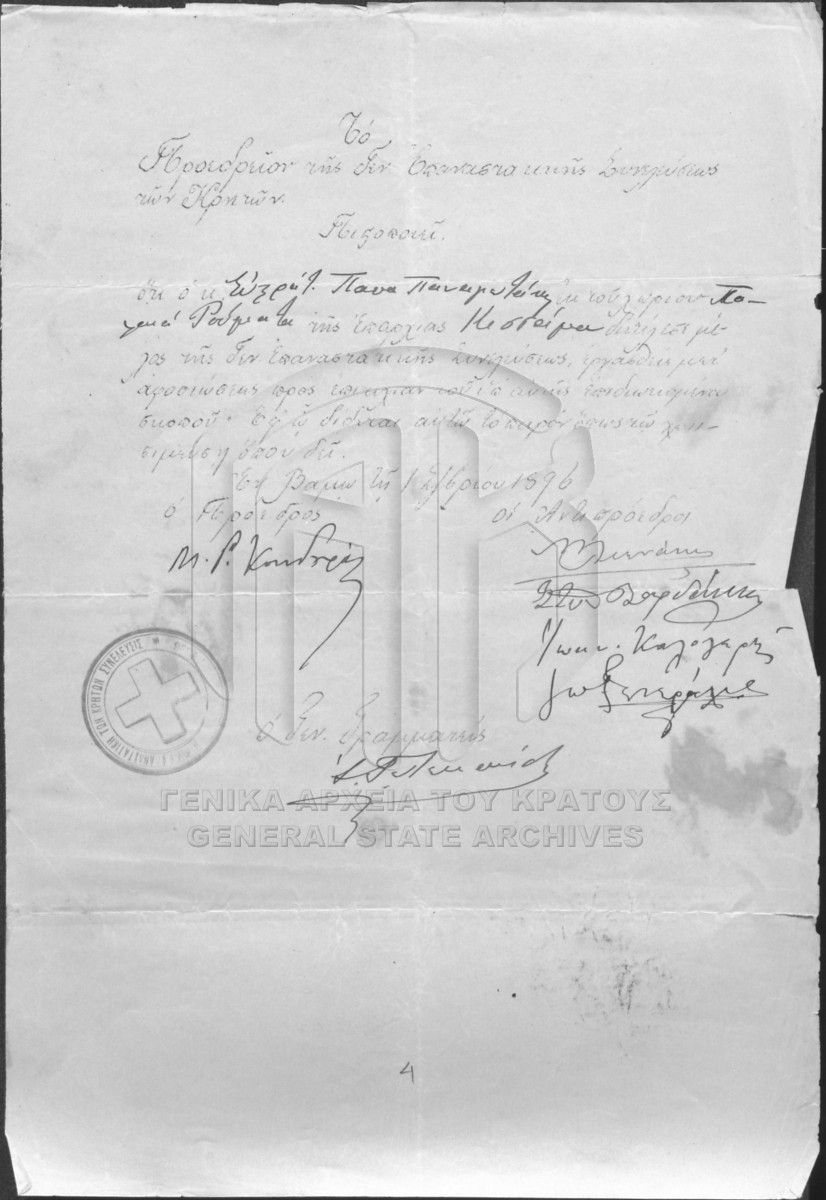 Τὸ
Προεδρεῖον τῆς Γεν Ἐπαναστατικῆς Συνελεύσεως
τῶν Κρητῶν.
Πιστοποιεῖ.
ὅτι ὁ κ. Εὐστρατ. Παπα Παναγιωτάκης ἐκ τοῦ χωρίου Πα-
λαιά Ρούματα τῆς Ἐπαρχίας Κισσάμου διετέλεσε μέ-
λος τῆς Γεν Ἐπαναστατικῆς Συνελεύσεως, ἐργασθείς μετ'
ἀφοσιώσεως πρὸς ἐπιτυχίαν τοῦ ὑπ' αὐτῆς ἐπιδιωκομένου
σκοποῦ. Ἐφ' ᾧ δίδοται αὐτῷ τὸ παρόν ὅπως τῷ χρη-
σιμεύσῃ ὅπου δεῖ.
Ἐν Βάμῳ τῇ 1 7/βρίου 1896
ὁ Πρόεδρος οἱ Ἀντιπρόεδροι
Μ. Ρ. Κούνδουρος
Ἰωάν. Καλογερῆς
ὁ Γεν. Γραμματεύς
ΤΩΝ ΚΡΗΤΩΝ ΣΥΝΕΛΕΥΣΙΣ
ΓΕΝΙΚΑ ΑΡΧΕΙΑ ΤΟΥ ΚΡΑΤΟΥΣ
GENERAL STATE ARCHIVES
4